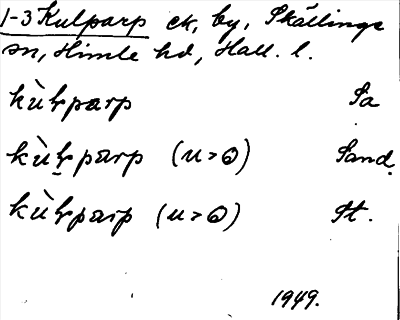 1-3 Kulparp ck, by, Skällinge
sn, Himle hd, Hall. l.
kùḷparp Sa
kùḷparp (u>o) Sand.
kùḷparp (u>o) St.
1949.